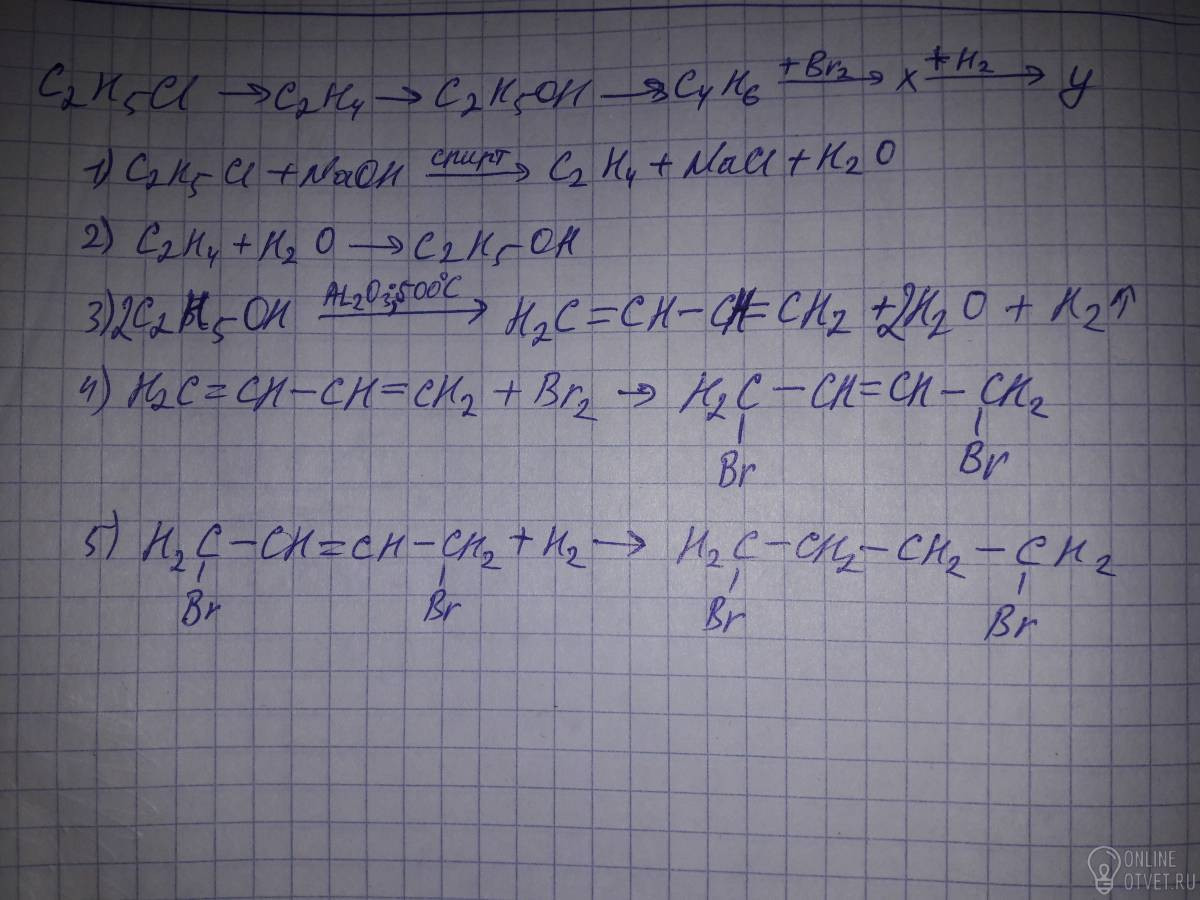 C₂H₅Cl → C₂H₄ → C₂H₅OH → C₄H₆ +Br₂→ X +H₂→ Y
1) C₂H₅Cl + NaOH спирт→ C₂H₄ + NaCl + H₂O
2) C₂H₄ + H₂O → C₂H₅OH
3) 2C₂H₅OH AL₂O₃; 500°C→ H₂C=CH-CH=CH₂ + 2H₂O + H₂↑
4) H₂C=CH-CH=CH₂ + Br₂ → H₂C-CH=CH-CH₂
Br Br
5) H₂C-CH=CH-CH₂ + H₂ → H₂C-CH₂-CH₂-CH₂
Br Br Br Br
ONLINE
OTVET.RU